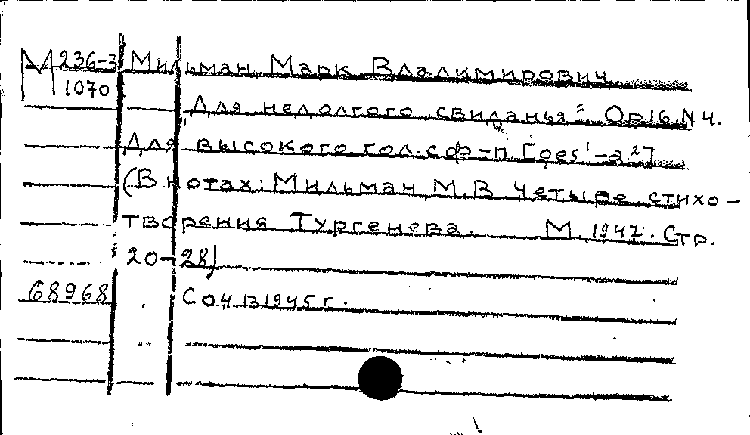 М 236-3 Мильман Марк Владимирович
1070 Для недолгого свиданья. Op16.N4.
Для высокого гол. с ф-п. [ges'-a²]
(В нотах: Мильман М.В. Четыре стихо-
творения Тургенева. М. 1947. Стр.
20-28)
68968 Соч. 1945 г.